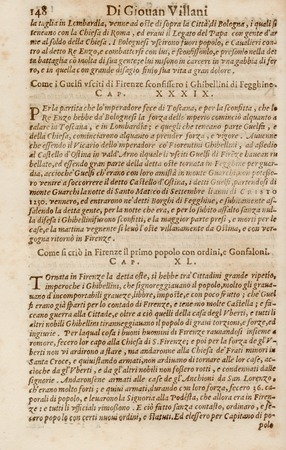 148 Di Giouan Villani
la taglia in Lombardia, venne ad oste di sopra la Città di Bologna, i quali si
teneano con la Chiesa di Roma, ed erani il Legato del Papa con gente d'ar
me al soldo della Chiesa. I Bolognesi vscirono fuori popolo, e Caualieri con
tro al detto Re Enzo, e combatterolsi con lui, e sconfissonlo, e presonlo nella det
ta battaglia cō molta di sua gente, e lui misono in carcere in vna gabbia di fer
ro, e in quella con grande disagio finìo sua vita a gran dolore.
Come i Guelfi vsciti di Firenze sconfissero i Ghibellini di Fegghine.
CAP. XXXIX.
PEr la partita che lo'mperadore fece di Toscana, e per la sconfitta, che lo
Re Enzo hebbe da'Bolognesi la forza dello mperio cominciò alquanto a
calare in Toscana, e in Lombardia; e quegli che teneano parte Guelfa, e
della Chiesa, cominciarono alquanto a prender forza, e vigore. Auenne
che essendo il Vicario dello mperadore co'Fiorentini Ghibellini, ad assedio
al Castello d'Ostina in vald'Arno, il quale i vsciti Guelfi di Firenze haueano ru
bellato, ed essendo gran parte della detta oste tornata in Fegghine per guar
dia, accioche Guelfi ch'erano con loro amistà in monte Guarchi non potesse
ro venire a soccorrere il detto Castello d'Ostina, i detti Guelfi
monte Guarchi la notte di Santo Matteo di Settembre li anni di Cristo
1250. vennero, ed entrarono ne'detti Borghi di Fegghine, e subitamente as-
salendo la detta gente, per la notte che era, e per lo subito assalto sanza nul-
la difesa i Ghibellini furono sconfitti, e la maggior parte presi, e morti per le
case, e la mattina vegnente si leuò l'oste villanamente da Ostina, e con ver-
gogna ritornò in Firenze.
Come si criò in Firenze il primo popolo con ordini, e Gonfaloni.
CAP. XL.
TOrnata in Firenze la detta oste, sì hebbe tra' Cittadini grande ripetio,
imperoche i Ghibellini, che signoreggiauano il popolo, molto gli graua-
uano d'incomportabili grauezze, libbre, imposte, e con poco frutto; che Guel
fi erano già sparti per lo contado di Firenze, e teneano molte Castella; e fa-
ceano guerra alla Cittade, e oltre a ciò quelli della casa degl'Vberti, e tutti li
altri nobili Ghibellini tiranneggiauano il popolo di graui torzioni, e forze, ed
ingiurie. Per la qual cosa i buoni huomini di Firenze raunandosi insieme a
romore, fecero lor capo alla Chiesa di S. Firenze; e poi per la forza degl'V-
berti non vi ardirono a stare, ma andarono alla Chiesa de'Frati minori in
Santa Croce, e quiui stando armati, non ardiuano di tornare alle lor case, ac-
cioche da gl'Vberti, e da gl'altri nobili non fossero rotti, e condennati dalle
signorie. Andaronsene armati alle case de gl'Anchioni da San Lorenzo,
ch'erano molto forti; e quiui armati, durando con loro forza, fecero 36. ca-
porali di popolo, e leuarono la Signoria alla Podestà, che allora era in Firen-
ze: e tutti li vfficiali rimossono. E ciò fatto sanza contasto, ordinaro, e fe-
cero popolo con certi nuoui ordini, e statuti. Ed elessero per Capitano di po-
polo